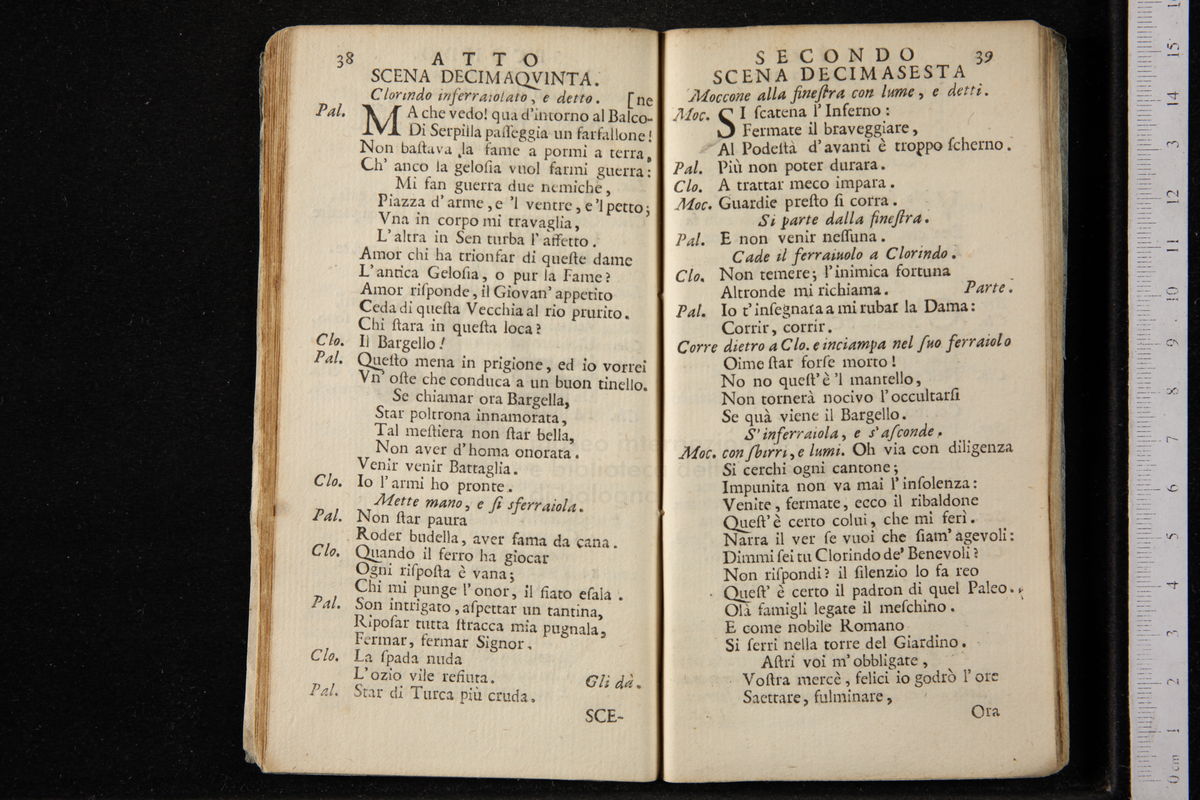 38 ATTO
SCENA DECIMAQVINTA.
Clorindo inferraiolato, e detto. [ne
Pal. MA che vedo! qua d'intorno al Balco-
Di Serpilla paſſeggia un farfallone!
Non baſtava la fame a pormi a terra,
Ch' anco la geloſia vuol farmi guerra:
Mi fan guerra due nemiche,
Piazza d'arme, e 'l ventre, e 'l petto;
Vna in corpo mi travaglia,
L'altra in Sen turba l'affetto.
Amor chi ha trionfar di queſte dame
L'antica Geloſia, o pur la Fame?
Amor riſponde, il Giovan' appetito
Ceda di queſta Vecchia al rio prurito.
Chi ſtara in queſta loca?
Clo. Il Bargello!
Pal. Queſto mena in prigione, ed io vorrei
Vn' oſte che conduca a un buon tinello.
Se chiamar ora Bargella,
Star poltrona innamorata,
Tal meſtiera non ſtar bella,
Non aver d'homa onorata.
Venir venir Battaglia.
Clo. Io l'armi ho pronte.
Mette mano, e ſi sferraiola.
Pal. Non ſtar paura
Roder budella, aver fama da cana.
Clo. Quando il ferro ha giocar
Ogni riſpoſta è vana;
Chi mi punge l'onor, il fiato eſala.
Pal. Son intrigato, aſpettar un tantina,
Ripoſar tutta ſtracca mia pugnala,
Fermar, fermar Signor.
Clo. La ſpada nuda
L'ozio vile refiuta. Gli dà.
Pal. Star di Turca più cruda.
SCE-
SECONDO 39
SCENA DECIMASESTA
Moccone alla fineſtra con lume, e detti.
Moc. SI ſcatena l'Inferno:
Fermate il braveggiare,
Al Podeſtà d'avanti è troppo ſcherno.
Pal. Più non poter durara.
Clo. A trattar meco impara.
Moc. Guardie preſto ſi corra.
Si parte dalla fineſtra.
Pal. E non venir neſſuna.
Cade il ferraiuolo a Clorindo.
Clo. Non temere; l'inimica fortuna
Altronde mi richiama. Parte.
Pal. Io t'inſegnara a mi rubar la Dama:
Corrir, corrir.
Corre dietro a Clo. e inciampa nel ſuo ferraiolo
Oime ſtar forſe morto!
No no queſt' è 'l mantello,
Non tornerà nocivo l'occultarſi
Se quà viene il Bargello.
S'inferraiola, e s'aſconde.
Moc. con ſbirri, e lumi. Oh via con diligenza
Si cerchi ogni cantone;
Impunita non va mai l'inſolenza:
Venite, fermate, ecco il ribaldone
Queſt' è certo colui, che mi ferì.
Narra il ver ſe vuoi che ſiam' agevoli:
Dimmi ſei tu Clorindo de' Benevoli?
Non riſpondi? il ſilenzio lo fa reo
Queſt' è certo il padron di quel Paleo.
Olà famigli legate il meſchino.
E come nobile Romano
Si ſerri nella torre del Giardino.
Aſtri voi m'obbligate,
Voſtra mercè, felici io godrò l'ore
Saettare, fulminare,
Ora